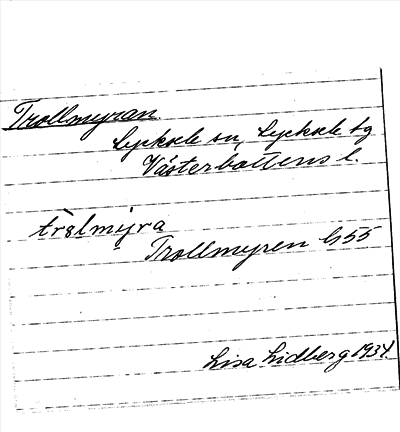 Trollmyran
Lycksele sn, Lycksele tg
Västerbottens l.
trålmyra
Trollmyren G55
Lisa Lidberg 1934.